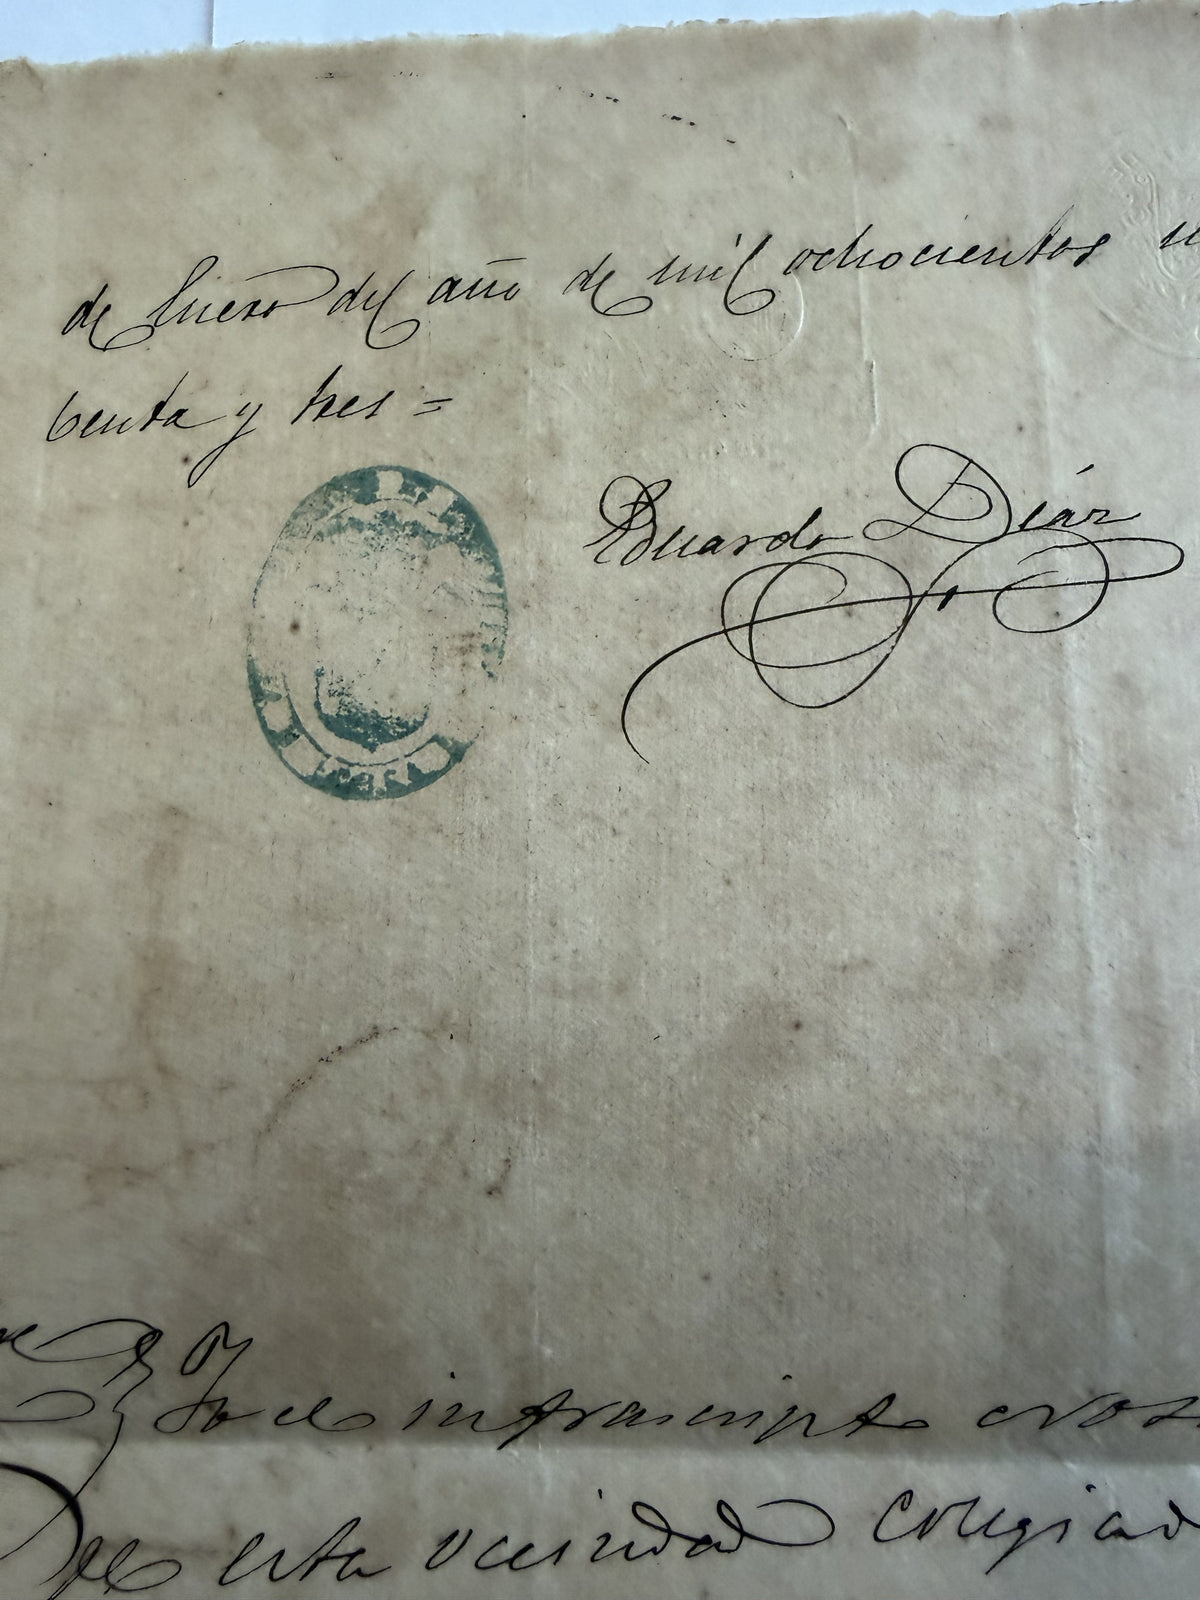 de Enero del año de mil ochocientos
venta y tres =
Eduardo Díaz
Yo el infrascripto
de esta vecindad colegiad